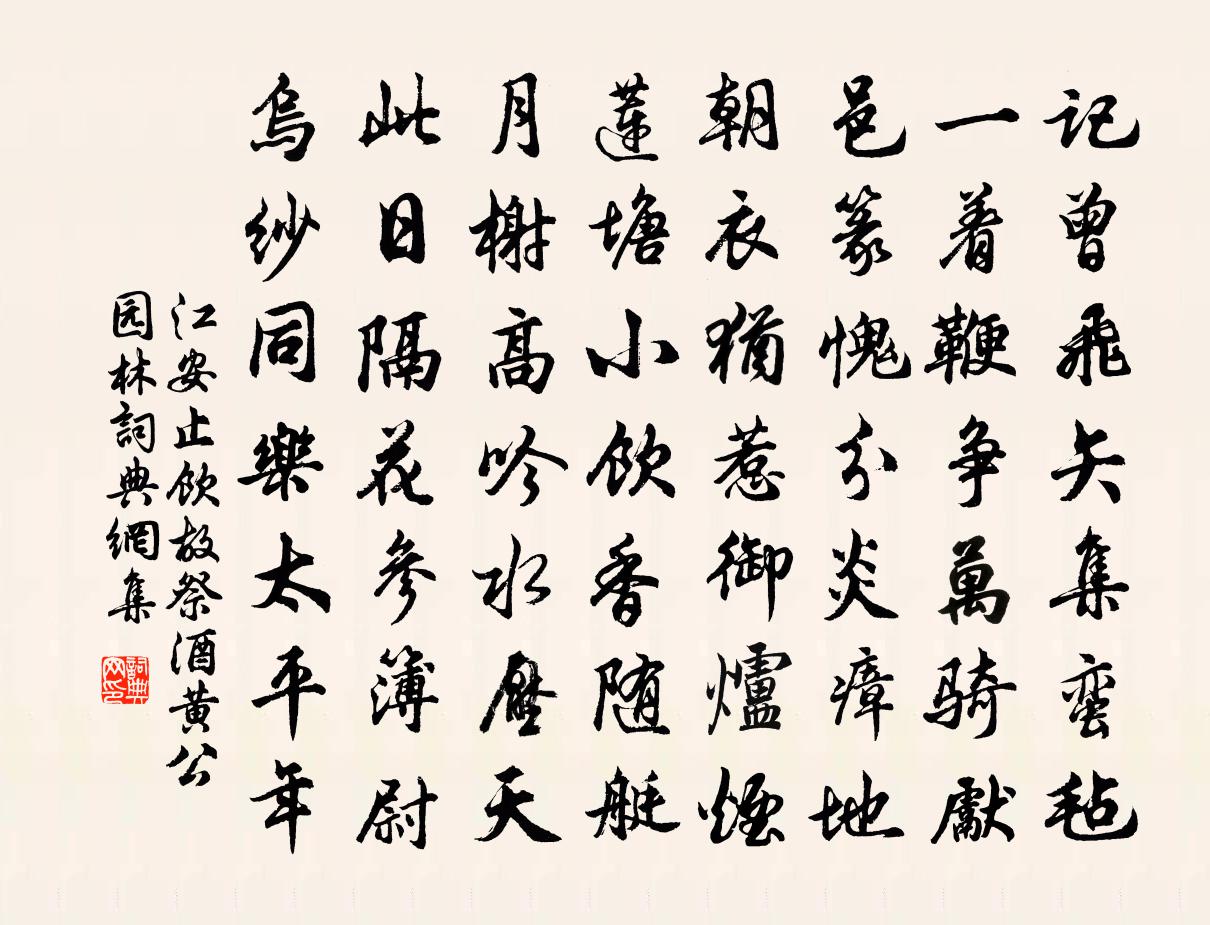 记曾飛矢集蛮毡
一着鞭争萬骑獻
邑篆愧分炎瘴地
朝衣猶惹御爐煙
蓮塘小飲香随艇
月榭高吟水壓天
此日隔花參簿尉
烏紗同樂太平年
江安止飲故祭酒黄公
园林詞典網集
詞典网印